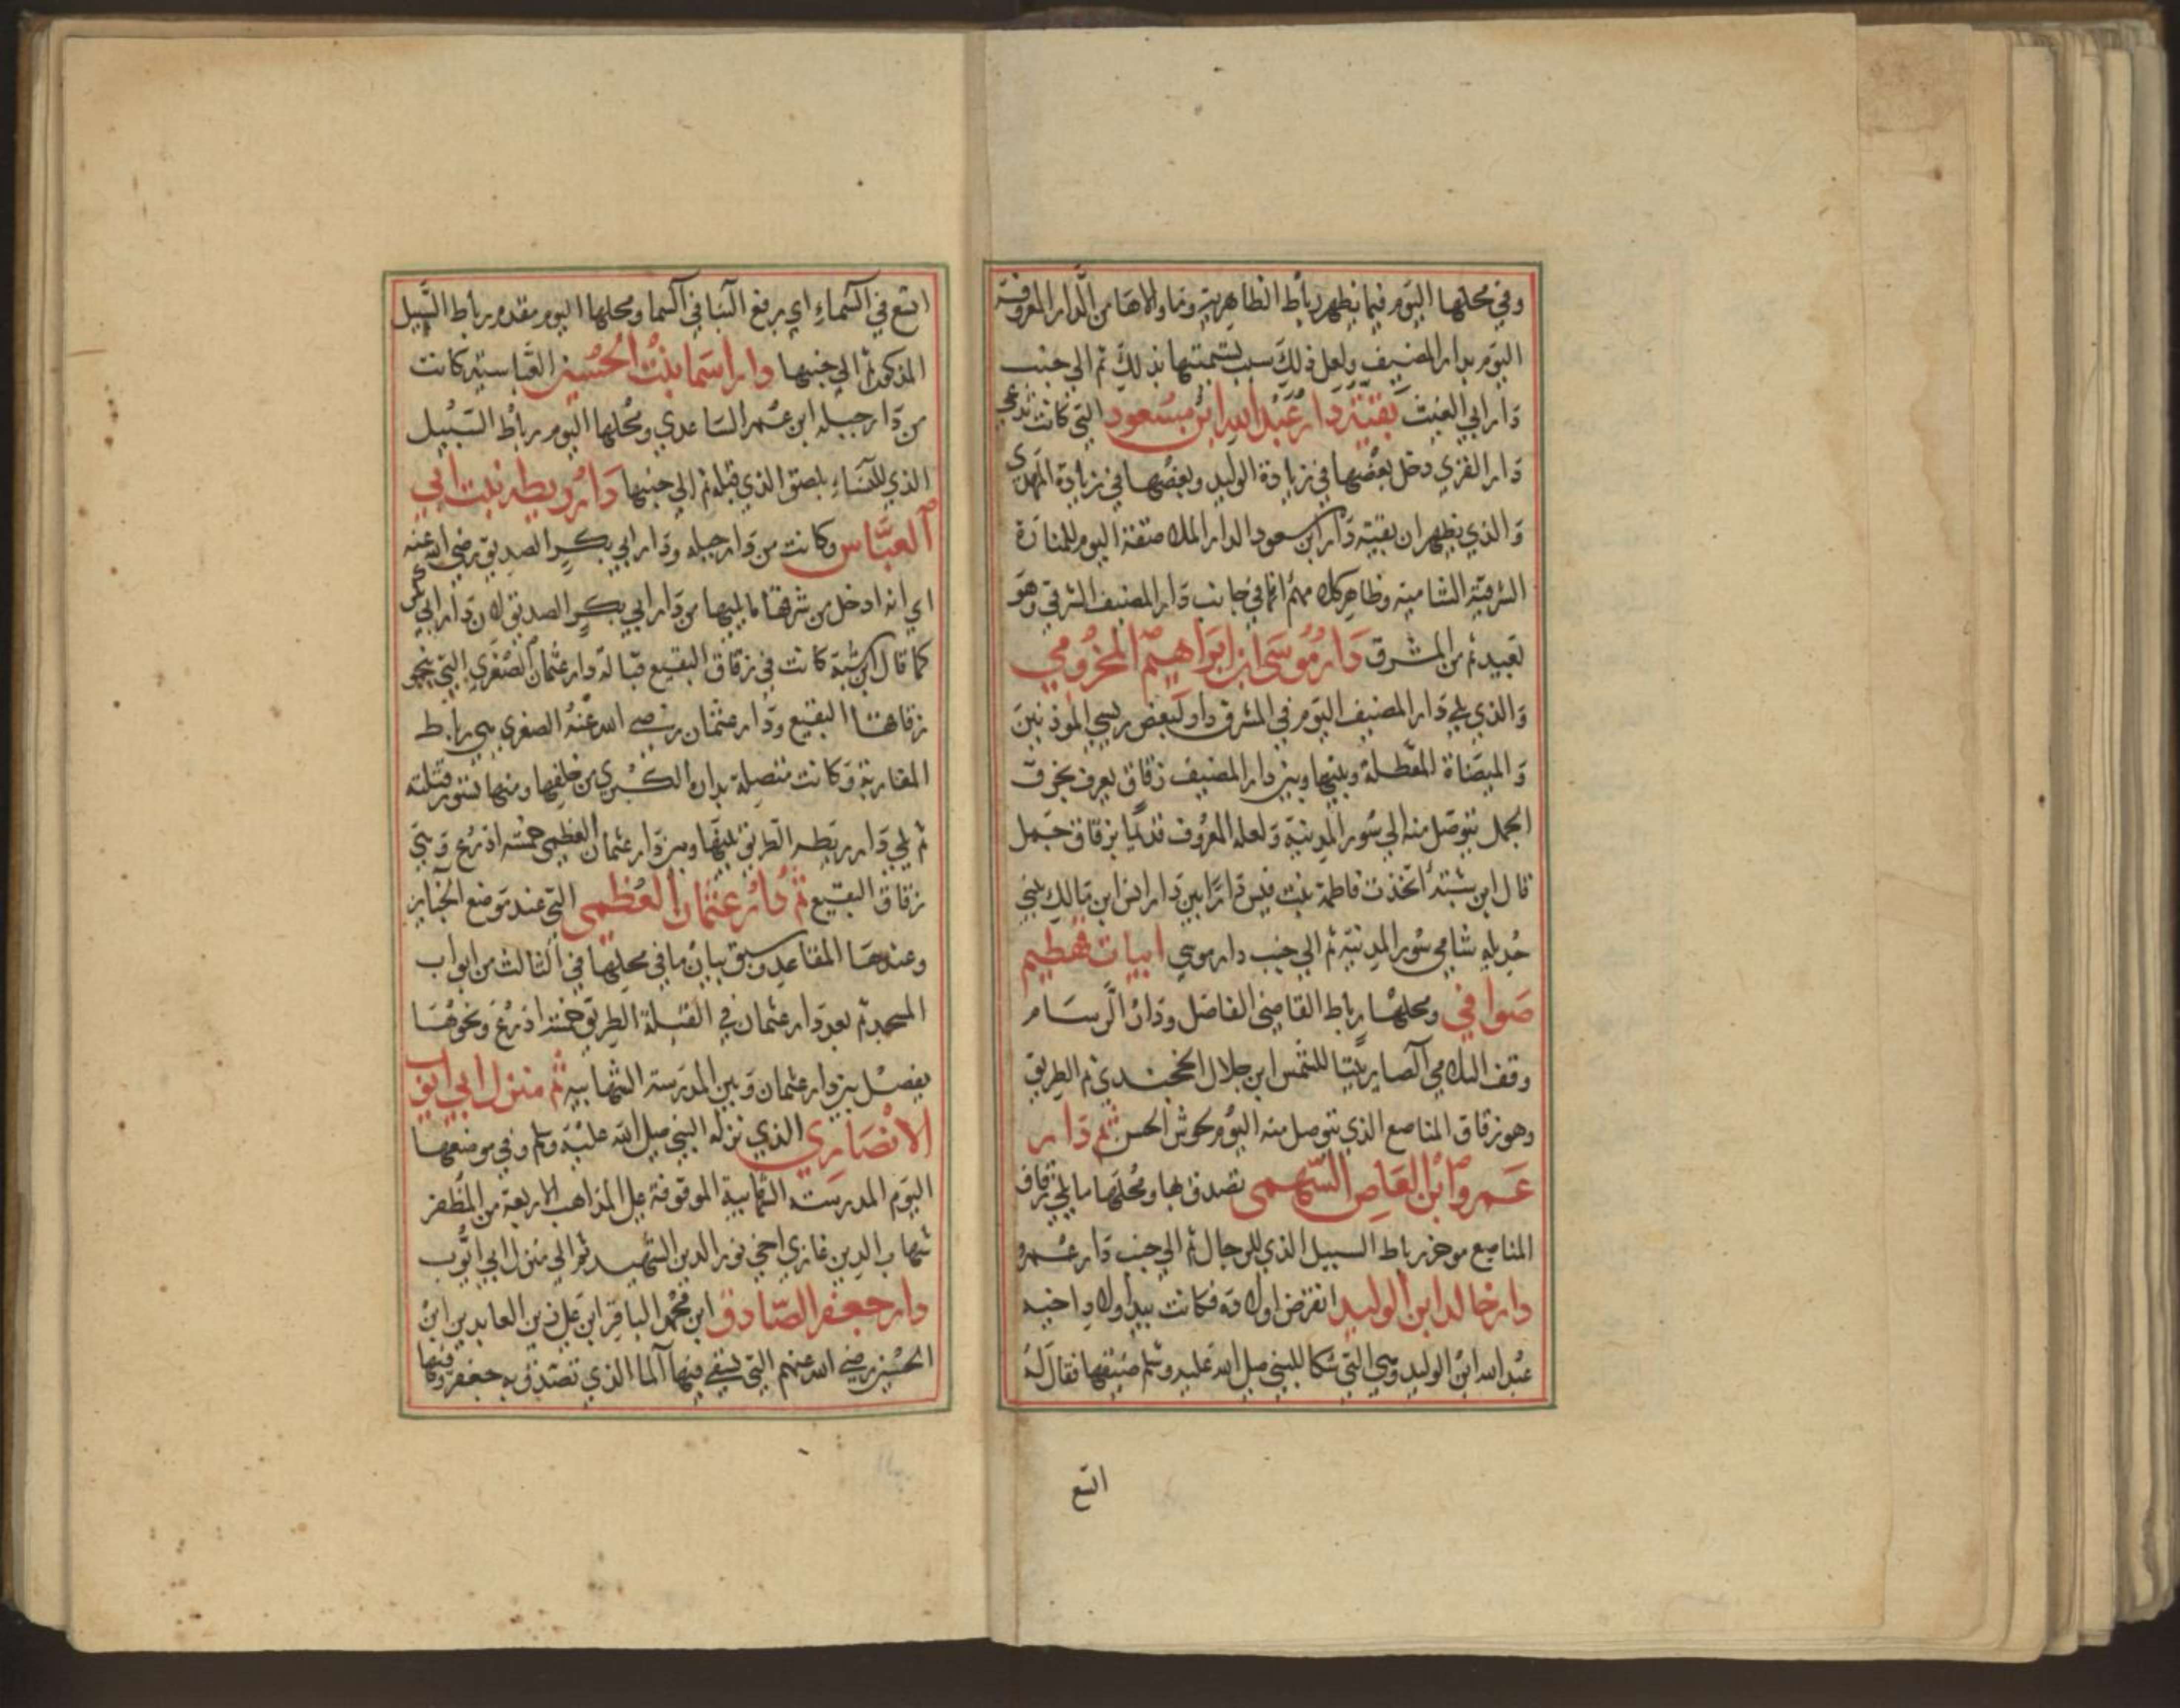 وفي محلها اليوم فيما يظهر رباط الظاهرية وما والاها من الدار المعروفة
اليوم بدار المضيف ولعل ذلك سبب تسميتها بذلك ثم الى جنب
دار ابي الغيث بقية دار عبد الله ابن مسعود التي كانت تدعى
دار القرى دخل بعضها في زيادة الوليد وبعضها في زيادة المهدي
والذي يظهر ان بقية دار ابن مسعود الدار الملاصقة اليوم للمنارة
الشرقية الشامية وظاهر كلامهم انها في جانب دار المضيف الشرقي وهو
بعيد ثم من المشرق دار موسى ابن ابراهيم المخزومي
والذي يلي دار المضيف اليوم في المشرق دار لبعض ريسي الموذنين
والميضاة المعطلة وبينها وبين دار المضيف زقاق يعرف بخرق
الجمل يتوصل منه الي سور المدينة ولعله المعروف قديما بزقاق جمل
قال ابن شبة اتخذت فاطمة بنت قيس دارا بين دار انس ابن مالك بني
جديله شامي سور المدينة ثم الي جنب دار موسي ابيات قهطيم
صوافي ومحلها رباط القاضي الفاضل ودار الرسام
وقف السلامي الصايرتيتا للشمس ابن جلال الخجندي ثم الطريق
وهو زقاق المناصع الذي يتوصل منه اليوم لحوش الحسن ثم دار
عمرو ابن العاص السهمي تصدق بها ومحلها ما يلي زقاق
المناصع موخر رباط السبيل الذي للرجال ثم الي جنب دار عمرو
دار خالد ابن الوليد انقرض اولاده فكانت بيد اولاد اخيه
عبد الله ابن الوليد وهي التي شكا للنبي صلى الله عليه وسلم ضيقها فقال له
اتسع
اتسع في السماء اي برفع البنا في السما ومحلها اليوم مقدم رباط السبيل
المذكور ثم الي جنبها دار اسما بنت الحسين العباسيه كانت
من دار جبله ابن عمر الساعدي ومحلها اليوم رباط السبيل
الذي للنساء بلصق الذي قبله ثم الي جنبها دار ريطه بنت ابي
العباس وكانت من دار جبله ودار ابي بكر الصديق رضي الله عنه
اي انه ادخل من شرقها ما يليها من دار ابي بكر الصديق لان دار ابي بكر
كما قال ابن شبة كانت في زقاق البقيع قبالة دار عثمان الصغرى التي بنحو
زقاقها البقيع ودار عثمان رضي الله عنه الصغرى هي رباط
المغاربة وكانت متصلة بداره الكبرى من خلفها ومنها تسور قتلته
ثم يلي دار ريطه الطريق بينها وبين دار عثمان العظمى خمسه اذرع وهي
زقاق البقيع ثم دار عثمان العظمى التي عند موضع الجنايز
وعندها المقاعد وسبق بيان ما في محلها في الثالث من ابواب
المسجد ثم بعد دار عثمان في القبلة الطريق خمسة اذرع ونحوها
يفصل بين دار عثمان وبين المدرسة الشهابيه ثم منزل ابي ايوب
الانصاري الذي نزله النبي صلى الله عليه وسلم وفي موضعها
اليوم المدرسة الشهابية الموقوفة علي المذاهب الاربعة من المظفر
شهاب الدين غازي اخي نور الدين الشهيد ثم الي منزل ابي ايوب
دار جعفر الصادق ابن محمد الباقر ابن علي زين العابدين ابن
الحسين رضي الله عنهم التي يسقى فيها الما الذي تصدق به جعفر وفيها